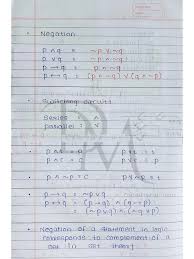 • Negation
p ∧ q = ~p ∨ ~q
p ∨ q = ~p ∧ ~q
p → q = p ∧ ~q
p ↔ q = (p ∧ ~q) ∨ (q ∧ ~p)
• Switching circuit
Series : ∧
parallel : ∨
p → q = ~p ∨ q
p ↔ q = (p → q) ∧ (q → p)
= (~p ∨ q) ∧ (~q ∨ p)
• Negation of a statement in logic
corresponds to complement of a
set in set theory.